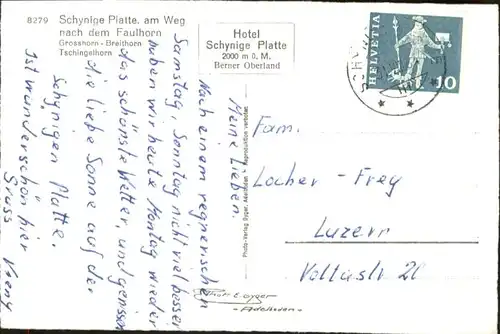 8279 Schynige Platte, am Weg
nach dem Faulhorn
Grosshorn - Breithorn
Tschingelhorn
Hotel
Schynige Platte
2000 m ü. M.
Berner Oberland
HELVETIA
10
Meine Lieben.
Nach einem regnerischen
Samstag, Sonntag nicht viel besser
haben wir heute Montag wieder
das schönste Wetter, und genissen
die liebe Sonne auf der
Schynigen Platte.
Ist wunderschön hier
Gruss Vreny
Fam.
Locher - Frey
Luzern
Voltastr. 21
Photo-Verlag Gyger, Adelboden
Reproduktion verboten
Gyger
Adelboden